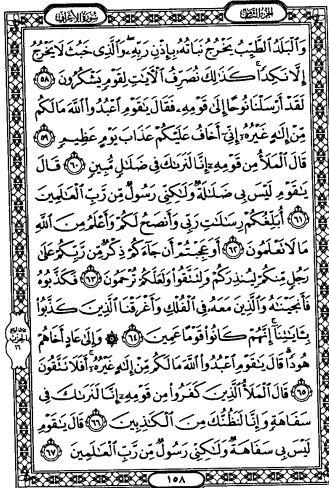 سُورَةُ الأَعْرَافِ الجُزْءُ الثَّامِنُ
وَالْبَلَدُ الطَّيِّبُ يَخْرُجُ نَبَاتُهُ بِإِذْنِ رَبِّهِ وَالَّذِي خَبُثَ لَا يَخْرُجُ
إِلَّا نَكِدًا كَذَٰلِكَ نُصَرِّفُ الْآيَاتِ لِقَوْمٍ يَشْكُرُونَ ٥٨
لَقَدْ أَرْسَلْنَا نُوحًا إِلَىٰ قَوْمِهِ فَقَالَ يَاقَوْمِ اعْبُدُوا اللَّهَ مَا لَكُم
مِّنْ إِلَٰهٍ غَيْرُهُ إِنِّي أَخَافُ عَلَيْكُمْ عَذَابَ يَوْمٍ عَظِيمٍ ٥٩
قَالَ الْمَلَأُ مِن قَوْمِهِ إِنَّا لَنَرَاكَ فِي ضَلَالٍ مُّبِينٍ ٦٠ قَالَ
يَاقَوْمِ لَيْسَ بِي ضَلَالَةٌ وَلَٰكِنِّي رَسُولٌ مِّن رَّبِّ الْعَالَمِينَ
٦١ أُبَلِّغُكُمْ رِسَالَاتِ رَبِّي وَأَنصَحُ لَكُمْ وَأَعْلَمُ مِنَ اللَّهِ
مَا لَا تَعْلَمُونَ ٦٢ أَوَعَجِبْتُمْ أَن جَاءَكُمْ ذِكْرٌ مِّن رَّبِّكُمْ عَلَىٰ
رَجُلٍ مِّنكُمْ لِيُنذِرَكُمْ وَلِتَتَّقُوا وَلَعَلَّكُمْ تُرْحَمُونَ ٦٣ فَكَذَّبُوهُ
فَأَنجَيْنَاهُ وَالَّذِينَ مَعَهُ فِي الْفُلْكِ وَأَغْرَقْنَا الَّذِينَ كَذَّبُوا
بِآيَاتِنَا إِنَّهُمْ كَانُوا قَوْمًا عَمِينَ ٦٤ ۞ وَإِلَىٰ عَادٍ أَخَاهُمْ
هُودًا قَالَ يَاقَوْمِ اعْبُدُوا اللَّهَ مَا لَكُم مِّنْ إِلَٰهٍ غَيْرُهُ أَفَلَا تَتَّقُونَ
٦٥ قَالَ الْمَلَأُ الَّذِينَ كَفَرُوا مِن قَوْمِهِ إِنَّا لَنَرَاكَ فِي
سَفَاهَةٍ وَإِنَّا لَنَظُنُّكَ مِنَ الْكَاذِبِينَ ٦٦ قَالَ يَاقَوْمِ
لَيْسَ بِي سَفَاهَةٌ وَلَٰكِنِّي رَسُولٌ مِّن رَّبِّ الْعَالَمِينَ ٦٧
١٥٨